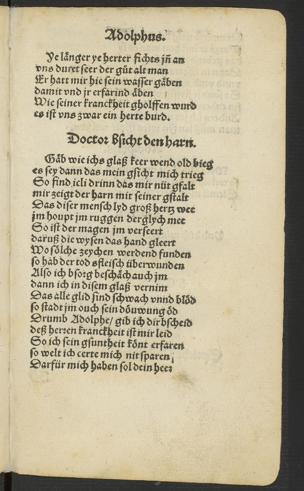 Adolphus.
Ye länger ye herter fichts jn̄ an
vns duret seer der güt alt man
Er hatt mir hie sein wasser gäben
damit vnd jr erfarind äben
Wie seiner kranckheit gholffen wurd
es ist vns zwar ein herte burd.
Doctor bsicht den harn.
Gäb wie ichs glaß keer wend old bieg
es sey dann das mein gsicht mich trieg
So find ich drinn das mir nüt gfalt
mir zeigt der harn mir seiner gstalt
Das diser mensch lyd groß hertz wee
jm houpt jm ruggen derglych mee
So ist der magen jm verseert
daruß die wysen das hand gleert
Wo sölche zeychen werdend funden
so hab der tod sfleisch überwunden
Also ich bsorg beschäch auch jm
dann ich in disem glaß vernim
Das alle glid sind schwach vnnd blöd
so stadt jm ouch sein döuwung öd
Drumb Adolphe/ gib ich dir bscheid
deß herren kranckheit ist mir leid
So ich sein gsuntheit könt erfaren
so welt ich certe mich nit sparen
Darfür mich haben sol dein heer